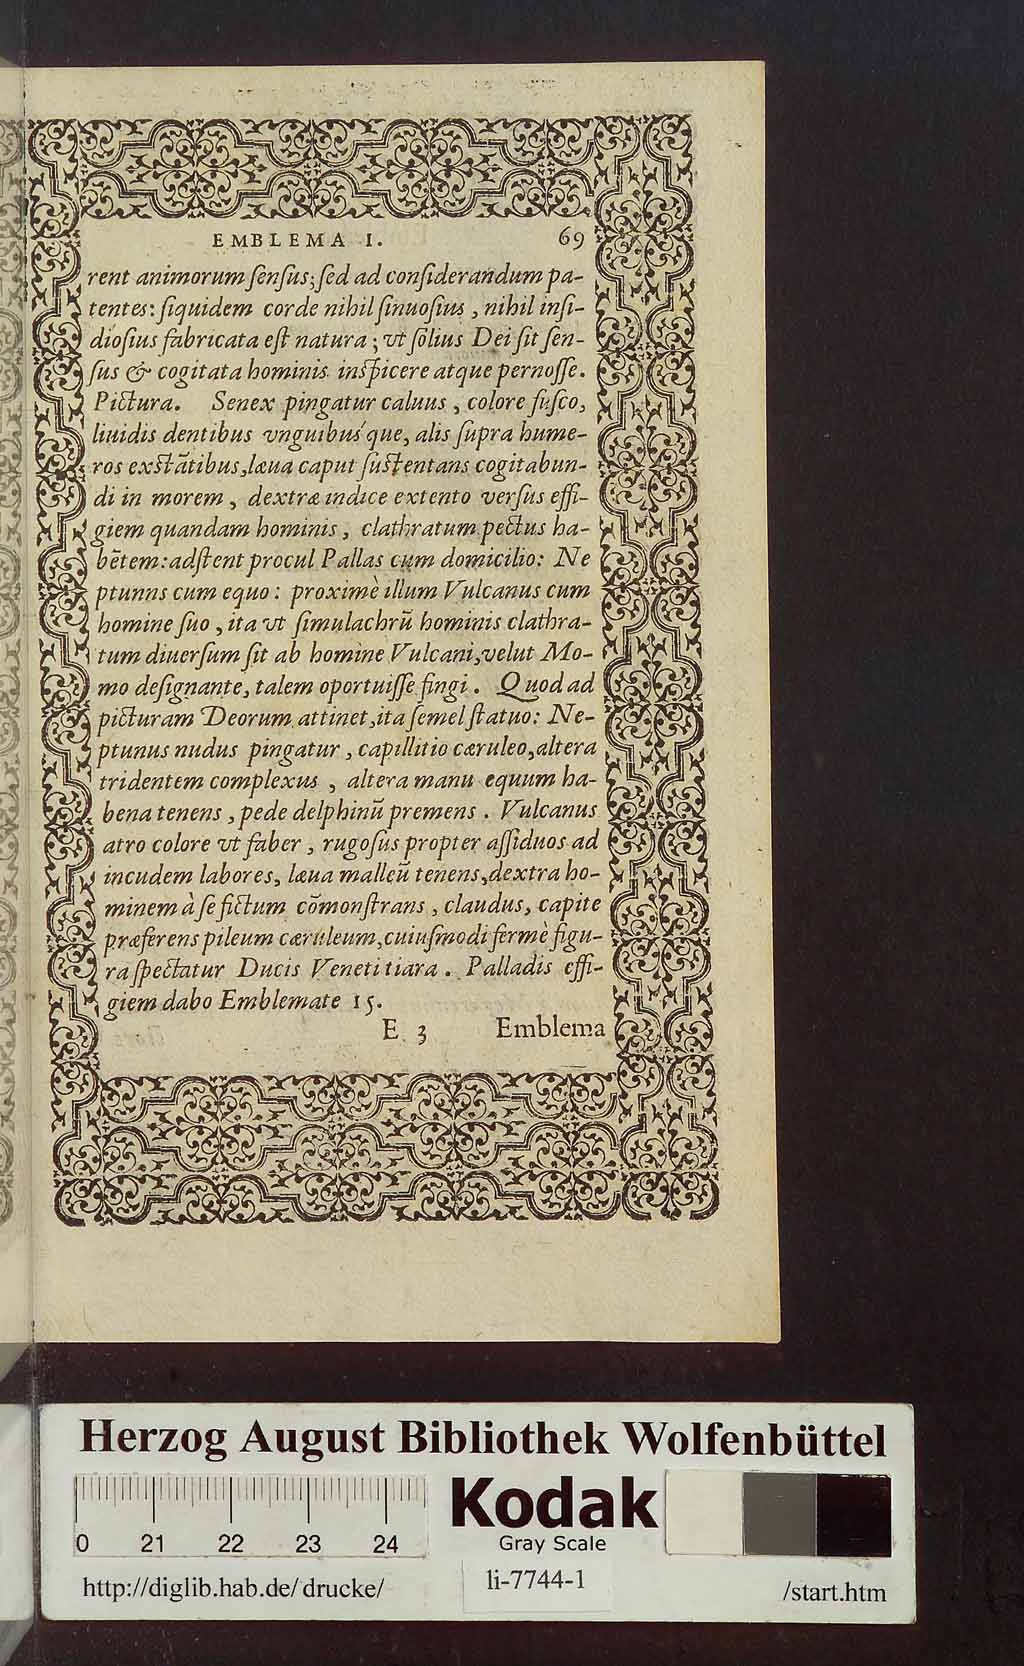 EMBLEMA I. 69
rent animorum ſenſus; ſed ad conſiderandum pa-
tentes: ſiquidem corde nihil ſinuoſius, nihil inſi-
dioſius fabricata eſt natura; vt ſolius Dei ſit ſen-
ſus & cogitata hominis inſpicere atque pernoſſe.
Pictura. Senex pingatur caluus, colore fuſco,
liuidis dentibus vnguibusque, alis ſupra hume-
ros exſtātibus, læua caput ſuſtentans cogitabun-
di in morem, dextræ indice extento verſus effi-
giem quandam hominis, clathratum pectus ha-
bētem: adſtent procul Pallas cum domicilio: Ne
ptunns cum equo: proximè illum Vulcanus cum
homine ſuo, ita vt ſimulachrū hominis clathra-
tum diuerſum ſit ab homine Vulcani, velut Mo-
mo deſignante, talem oportuiſſe fingi. Quod ad
picturam Deorum attinet, ita ſemel ſtatuo: Ne-
ptunus nudus pingatur, capillitio cæruleo, altera
tridentem complexus, altera manu equum ha-
bena tenens, pede delphinū premens. Vulcanus
atro colore vt faber, rugoſus propter aſſiduos ad
incudem labores, læua malleū tenens, dextra ho-
minem à ſe fictum cōmonſtrans, claudus, capite
præferens pileum cæruleum, cuiuſmodi fermè figu-
ra ſpectatur Ducis Veneti tiara. Palladis effi-
giem dabo Emblemate 15.
E 3 Emblema
Herzog August Bibliothek Wolfenbüttel
0 21 22 23 24
Kodak
Gray Scale
http://diglib.hab.de/drucke/ li-7744-1 /start.htm